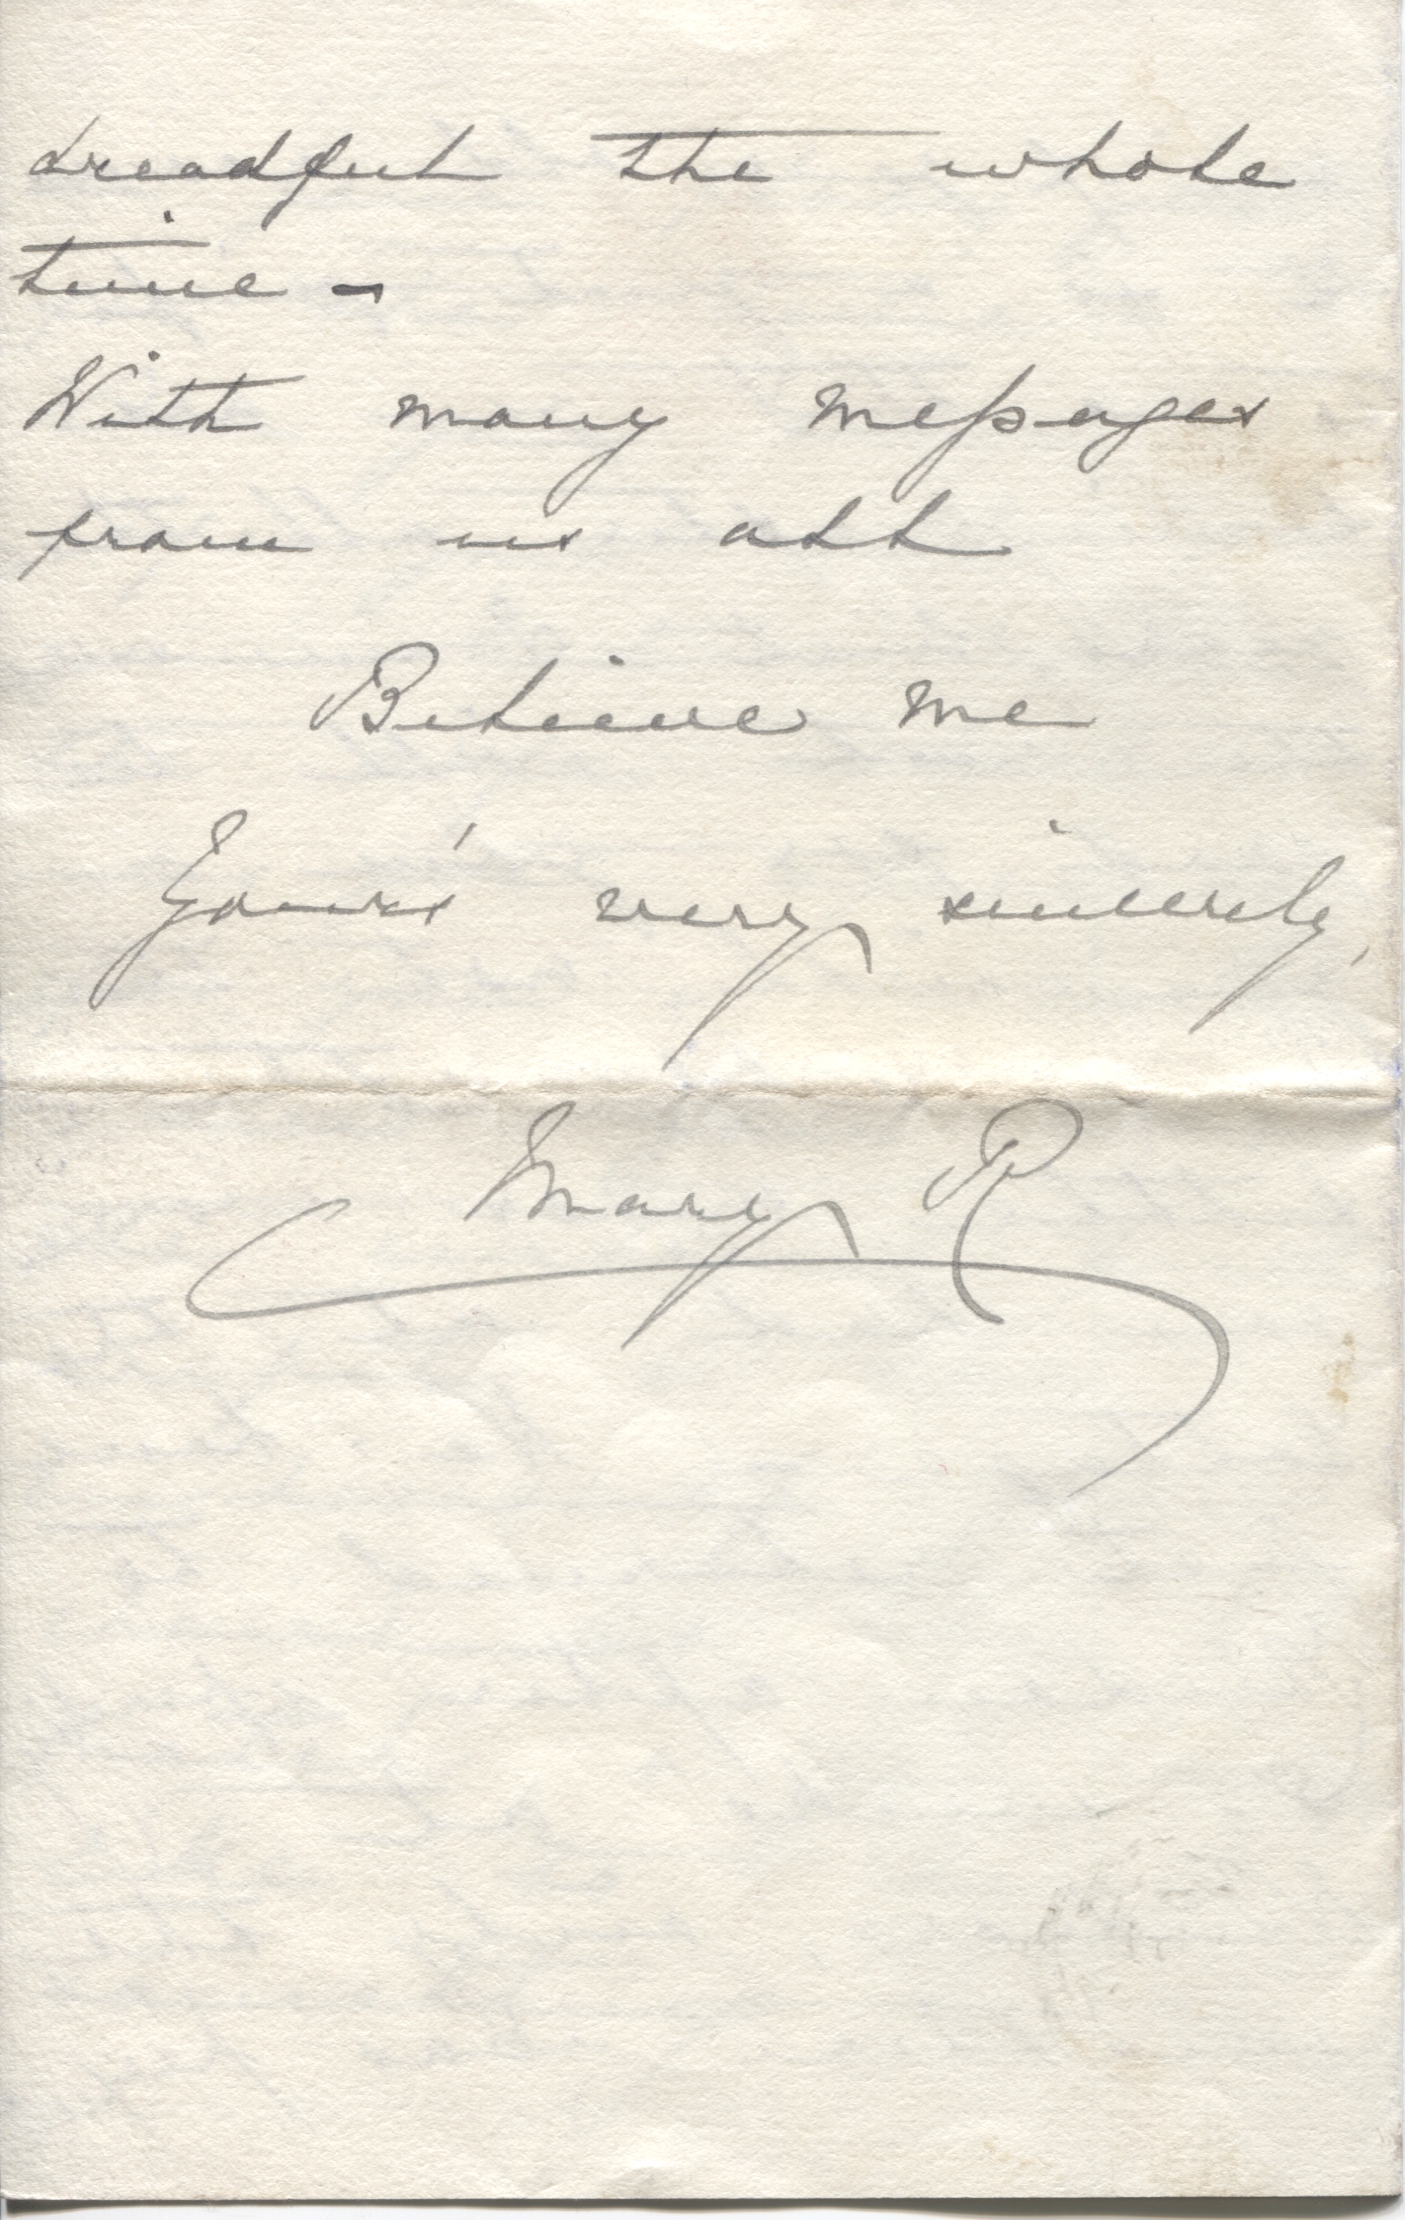 dreadful the whole
time –
With many messages
from us all
Believe me
Your's very sincerely,
Mary R